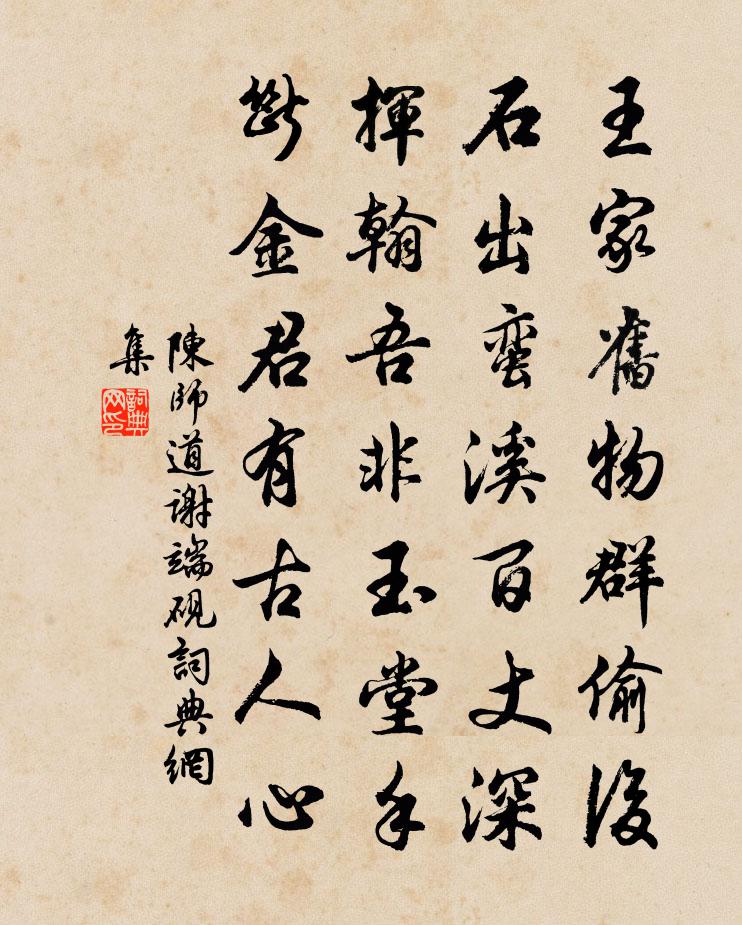 王家舊物群偷後
石出蠻溪百丈深
揮翰吾非玉堂手
斷金君有古人心
陳師道謝端硯詞典網
集
詞典
网印